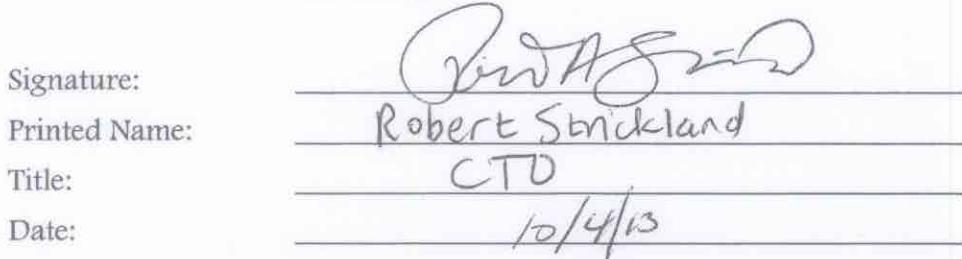 Signature:
Printed Name: Robert Strickland
Title: CTO
Date: 10/4/13